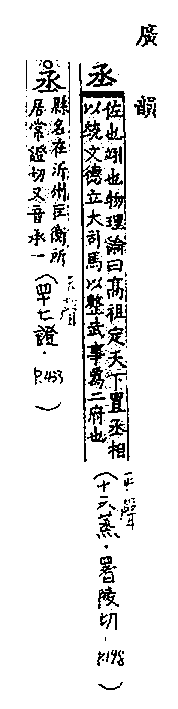 廣韻
丞
佐也翊也物理論曰高祖定天下置丞相
以統文德立大司馬以整武事爲二府也
(十六蒸·署陵切·P.198)
平聲
丞
縣名在沂州匡衡所
居常證切又音承一
(四十七證·P.433)
去聲